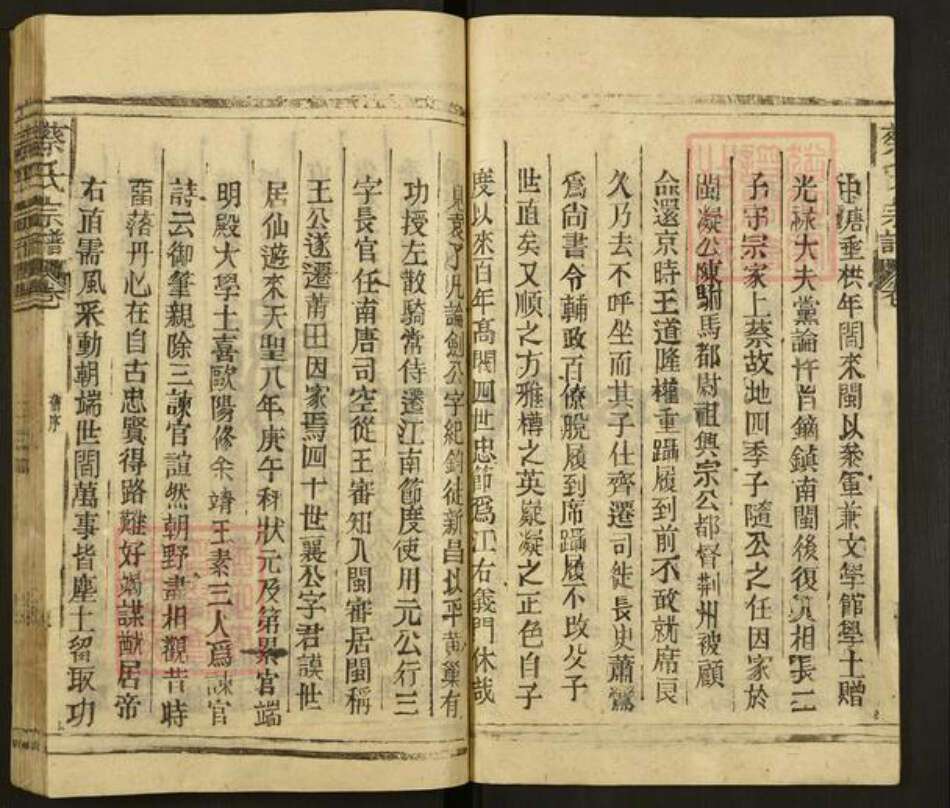 申塘垂拱年間來閩以叅軍兼文學館學士贈
光祿大夫黨論忤旨鏑鎮南閩後復相長二
子守宗家上蔡故地四季子隨公之任因家於
閩凝公陳駙馬都尉祖興宗公都督荆州被顧
命還京時王道隆權重躡履到前不敢就席良
久乃去不呼坐而其子仕齊遷司徒長史蕭鸞
爲尚書令輔政百僚脫履到席躡履不改父子
世直矣又順之方雅樽之英嶷凝之正色自子
度以來百年高閥四世忠節爲江右義門休哉
見袁了凡論劍公字紀鈞徒新昌以平黃巢有
功授左散騎常侍遷江南節度使用元公行三
字長官任南唐司空從王審知入閩審居閩稱
王公遂遷莆田因家焉四十世襄公字君謨世
居仙遊宋天聖八年庚午科狀元及第累官端
明殿大學士喜歐陽修余靖王素三人爲諫官
詩云御筆親除三諫官諠然朝野盡相觀昔時
流落丹心在自古忠賢得路難好竭謀猷居帝
右直需風采動朝端世間萬事皆塵土留取功
蔡氏宗譜 卷
舊序
蔡氏宗譜 卷